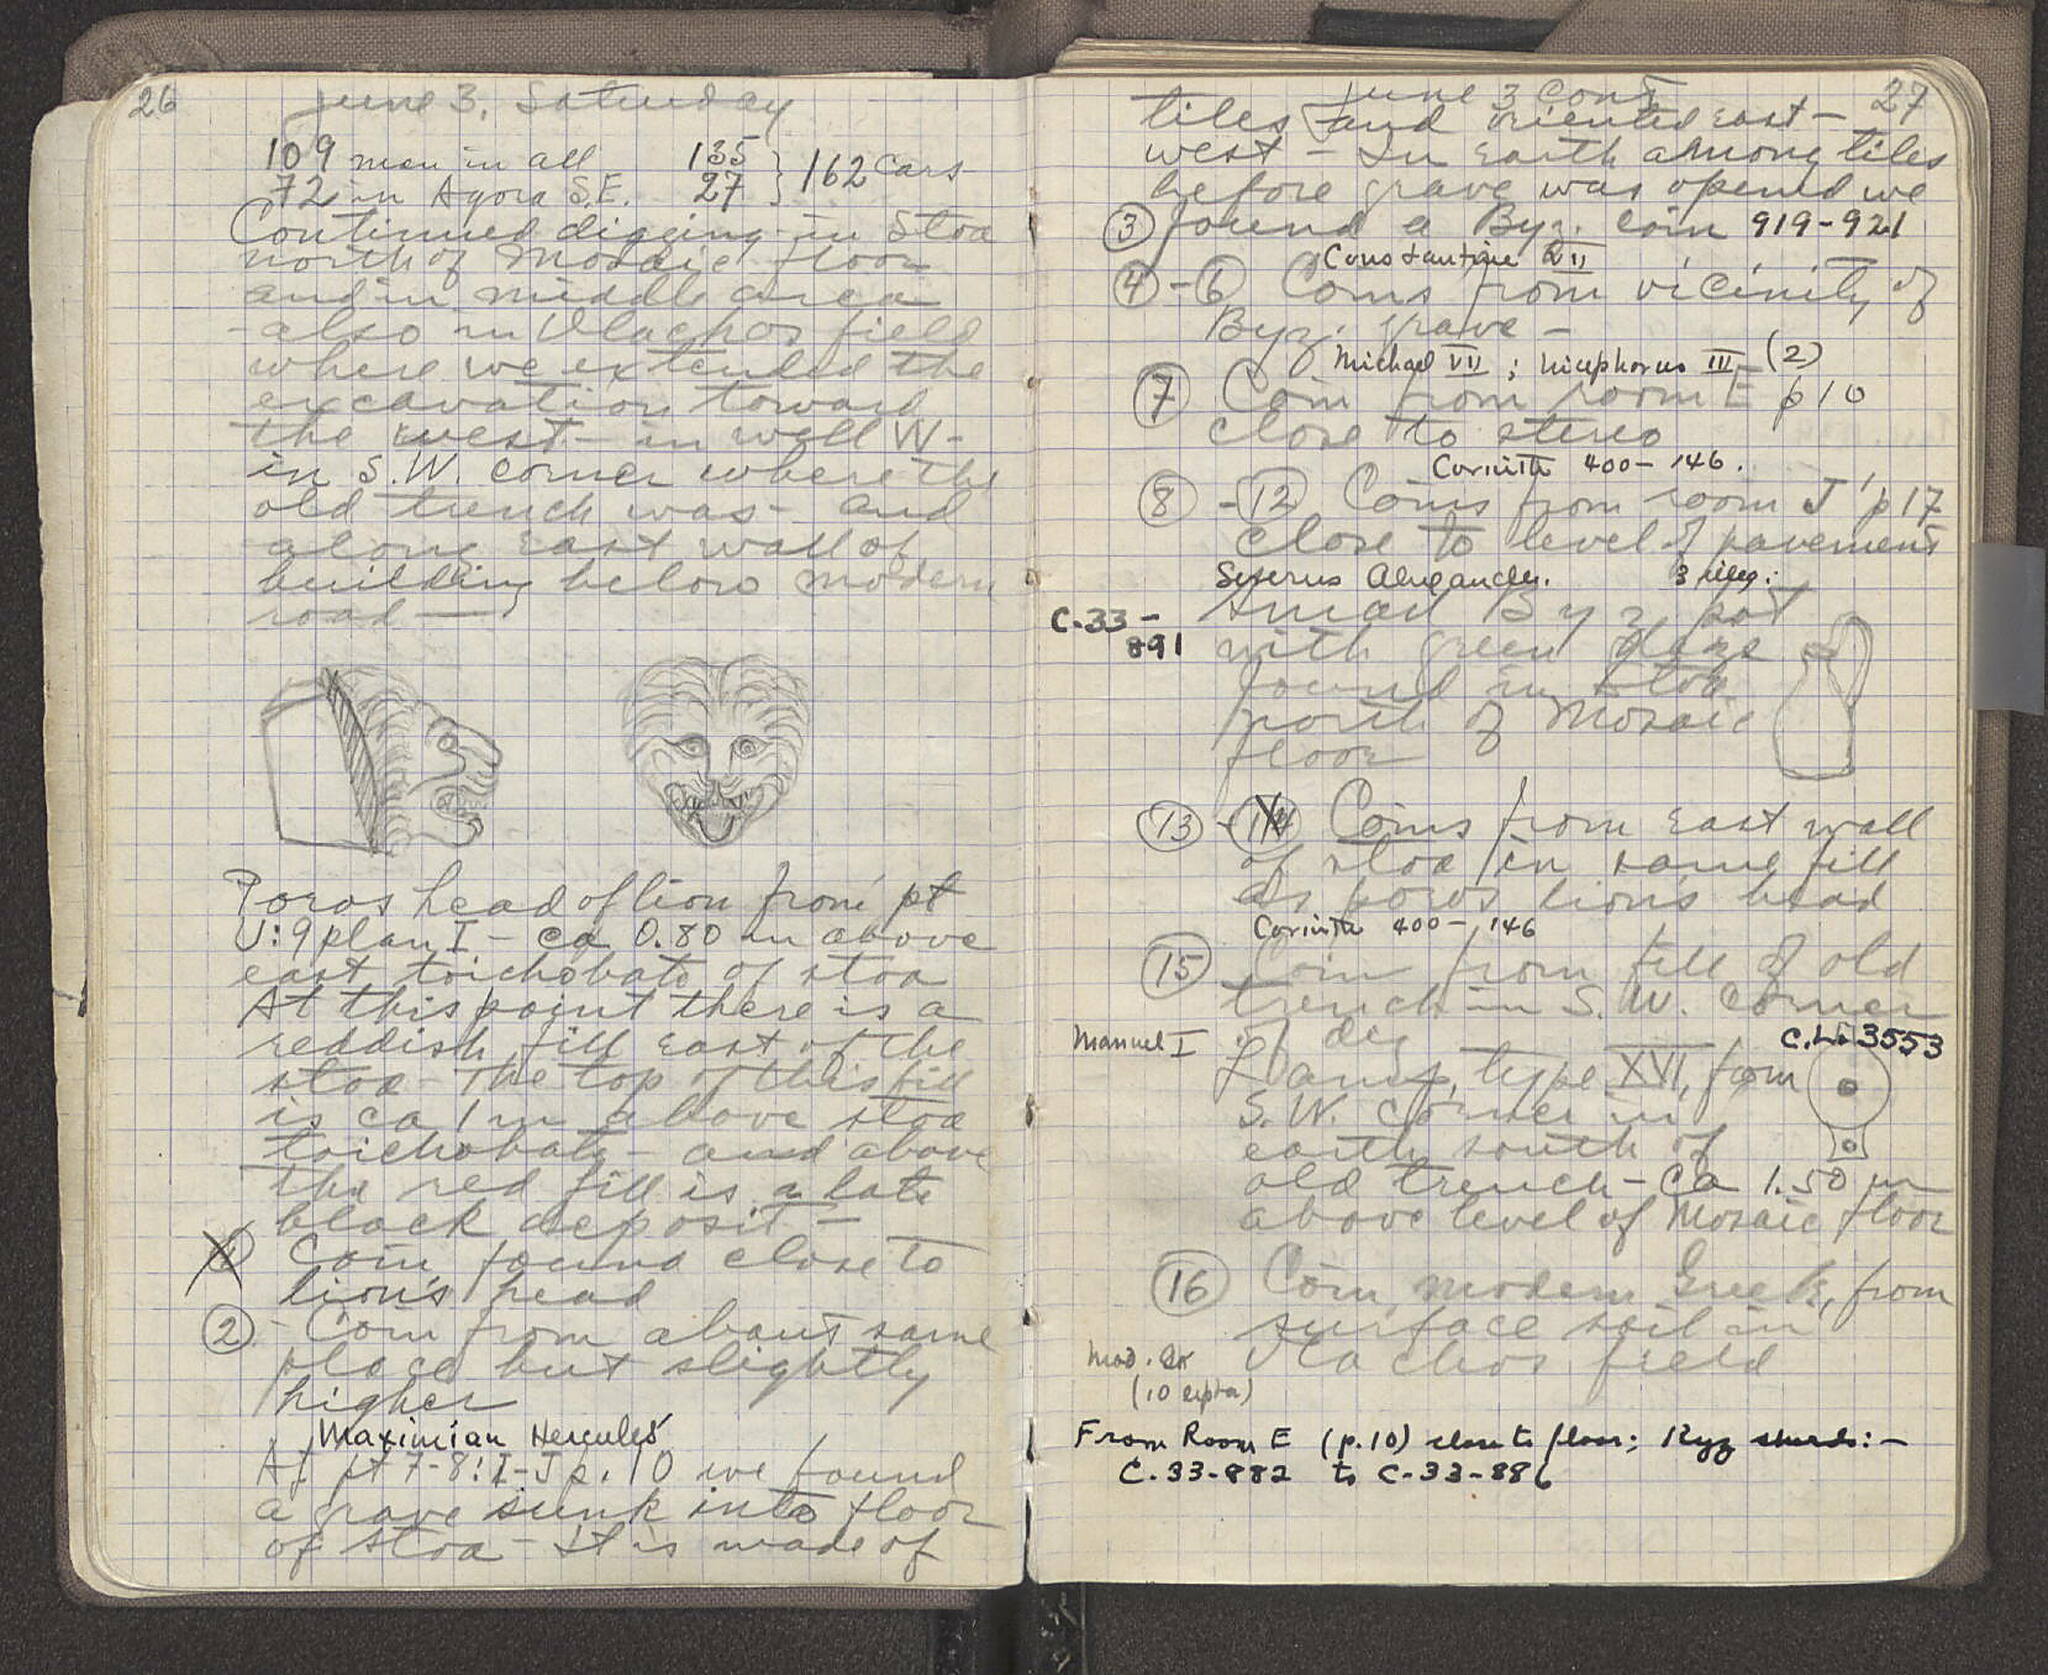 26
June 3, Saturday
109 men in all 135 } 162 Cars
72 in Agora S.E. 27
Continued digging in Stoa
north of Mosaic floor
and in middle area
- also in Vlachos field
where we extended the
excavation toward
the west - in well W -
in S.W. corner where the
old trench was - and
along east wall of
building below modern
road —
Poros head of lion from pt
U:9 plan I - ca 0.80 m above
east toichobate of stoa
At this point there is a
reddish fill east of the
stoa - The top of this fill
is ca 1 m above stoa
toichobate - and above
the red fill is a late
black deposit -
1 Coin found close to
lion's head
2 - Coin from about same
place but slightly
higher
Maximian Hercules
At pt 7-8:I-J p. 10 we found
a grave sunk into floor
of stoa - It is made of
June 3 cont 27
tiles and oriented east -
west - In earth among tiles
before grave was opened we
3 found a Byz. coin 919-921
Constantine VII
4 - 6 Coins from vicinity of
Byz. grave -
Michael VII ; Nicephorus III (2)
7 Coin from room E p 10
close to stereo
Corinth 400 - 146.
8 - 12 Coins from room J' p 17
close to level of pavement
Severus Alexander. 3 illeg:
C-33-
891
small Byz pot
with green glaze
found in stoa
north of Mosaic
floor
13 - 14 Coins from east wall
of stoa in same fill
as poros lion's head
Corinth 400 - 146
15 Coin from fill of old
trench in S.W. Corner
Manuel I of dig C.L. 3553
Lamp, type XVI, from
S.W. corner in
earth south of
old trench - Ca 1.50 m
above level of Mosaic floor
16 Coin, modern Greek, from
surface soil in
Mod. Gr Vlachos field
(10 lepta)
From Room E (p.10) close to floor; Byz sherds:-
C-33-882 to C-33-886